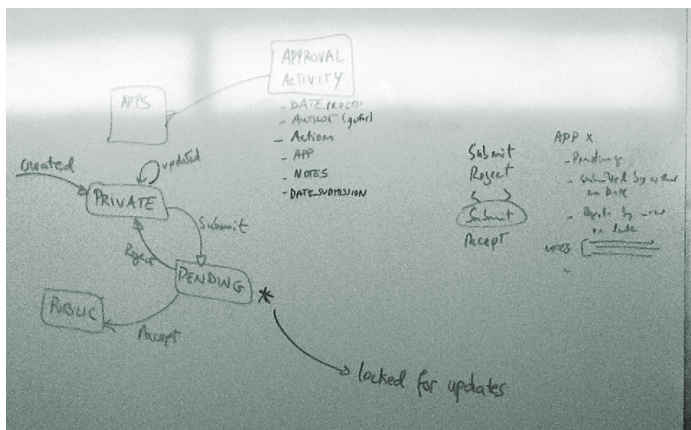 APPROVAL
ACTIVITY
APPS
- DATE
- AUTHOR
- Action
- APP
- NOTES
- DATE_SUBMISSION
created
updated
PRIVATE
Submit
Reject
PENDING
*
PUBLIC
Accept
locked for updates
Submit
Reject
Submit
Accept
APP X
- Pending
- Submitted by
on Date
by
on date
NOTES